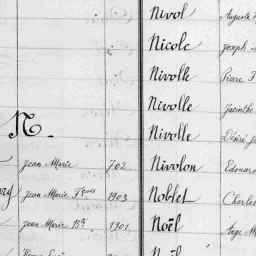 Nivol Auguste
Nicole Joseph
Nivolle Pierre
Nivolle Jacinthe
N.
Nivolle Désiré
Jean Marie 702 Nivolon Edouard
Jean Marie 1903 Noblet Charles
Jean Marie 1901 Noël Ange M
Noël